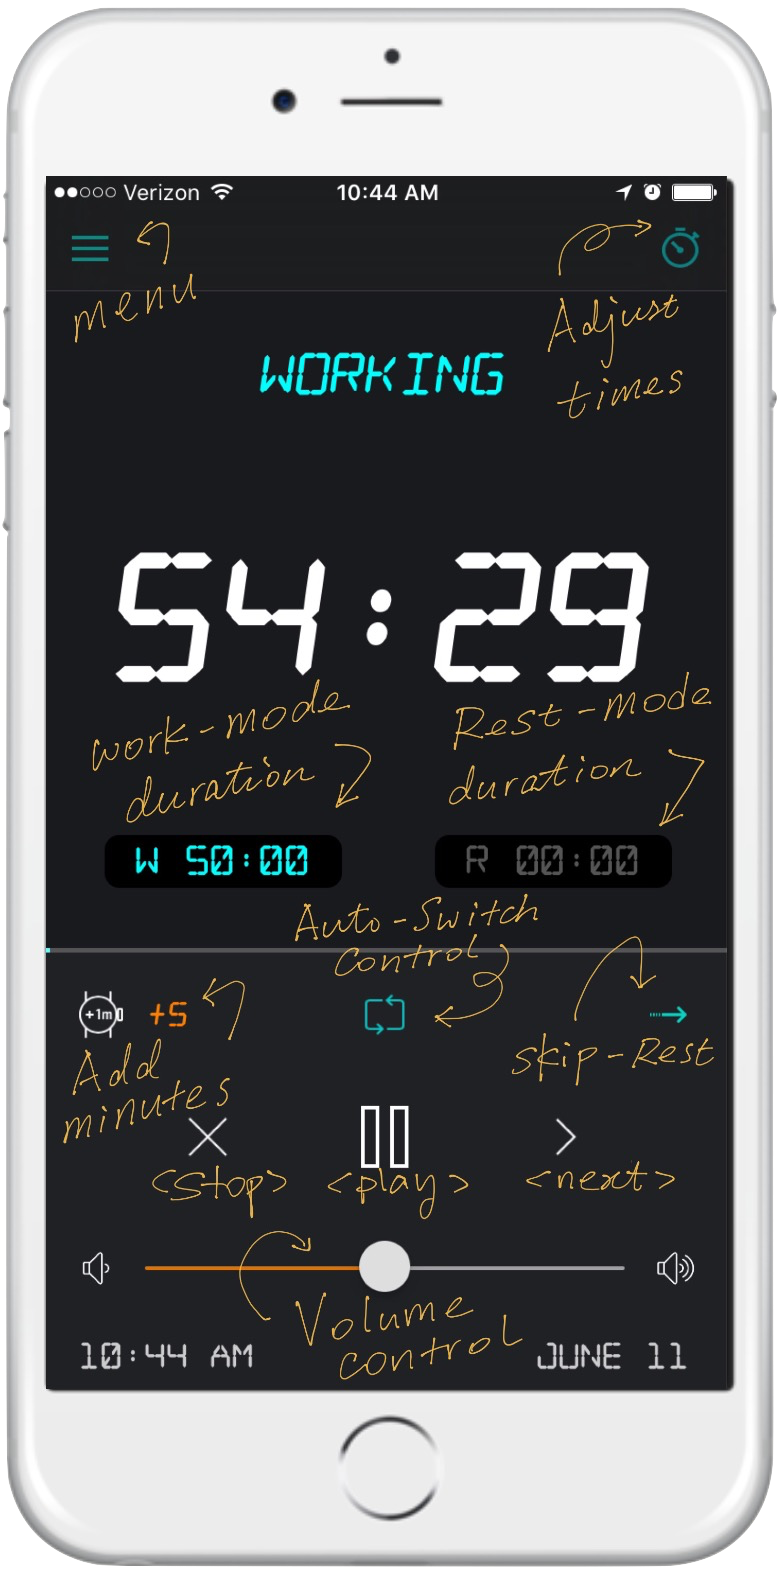 Verizon 10:44 AM
menu
Adjust
times
WORKING
54:29
work-mode
duration
Rest-mode
duration
W 50:00
R 00:00
Auto-Switch
control
+1m +5
Add
minutes
skip-Rest
<Stop> <play> <next>
Volume
control
10:44 AM JUNE 11